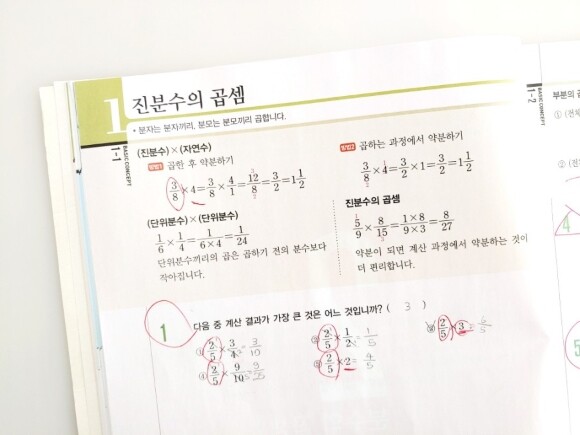 1
진분수의 곱셈
• 분자는 분자끼리, 분모는 분모끼리 곱합니다.
1-1 BASIC CONCEPT
(진분수)×(자연수)
방법1 곱한 후 약분하기
3/8×4=3/8×4/1=12/8=3/2=1 1/2
방법2 곱하는 과정에서 약분하기
3/8×4=3/2×1=3/2=1 1/2
(단위분수)×(단위분수)
1/6×1/4=1/(6×4)=1/24
단위분수끼리의 곱은 곱하기 전의 분수보다
작아집니다.
진분수의 곱셈
5/9×8/15=(1×8)/(9×3)=8/27
약분이 되면 계산 과정에서 약분하는 것이
더 편리합니다.
1-2 BASIC CONCEPT
부분의
① (전체
② (전
1 다음 중 계산 결과가 가장 큰 것은 어느 것입니까? ( 3 )
① 2/5×3/4=3/10
② 2/5×1/2=1/5
③ 2/5×3=6/5
④ 2/5×9/10=9/25
⑤ 2/5×2=4/5
4
5